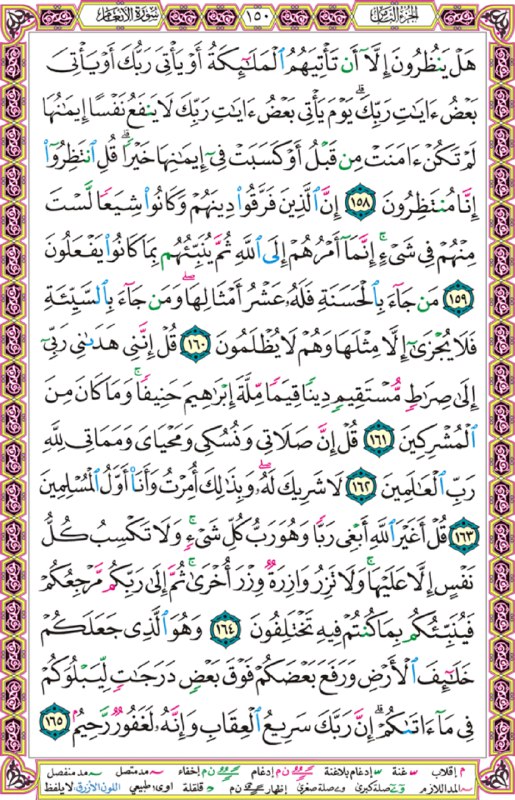 الجزء الثامن ١٥٠ سورة الأنعام
هَلْ يَنظُرُونَ إِلَّآ أَن تَأْتِيَهُمُ ٱلْمَلَـٰٓئِكَةُ أَوْ يَأْتِىَ رَبُّكَ أَوْ يَأْتِىَ
بَعْضُ ءَايَـٰتِ رَبِّكَ ۗ يَوْمَ يَأْتِى بَعْضُ ءَايَـٰتِ رَبِّكَ لَا يَنفَعُ نَفْسًا إِيمَـٰنُهَا
لَمْ تَكُنْ ءَامَنَتْ مِن قَبْلُ أَوْ كَسَبَتْ فِىٓ إِيمَـٰنِهَا خَيْرًا ۗ قُلِ ٱنتَظِرُوٓا۟
إِنَّا مُنتَظِرُونَ ١٥٨ إِنَّ ٱلَّذِينَ فَرَّقُوا۟ دِينَهُمْ وَكَانُوا۟ شِيَعًا لَّسْتَ
مِنْهُمْ فِى شَىْءٍ ۚ إِنَّمَآ أَمْرُهُمْ إِلَى ٱللَّهِ ثُمَّ يُنَبِّئُهُم بِمَا كَانُوا۟ يَفْعَلُونَ
١٥٩ مَن جَآءَ بِٱلْحَسَنَةِ فَلَهُۥ عَشْرُ أَمْثَالِهَا ۖ وَمَن جَآءَ بِٱلسَّيِّئَةِ
فَلَا يُجْزَىٰٓ إِلَّا مِثْلَهَا وَهُمْ لَا يُظْلَمُونَ ١٦٠ قُلْ إِنَّنِى هَدَىٰنِى رَبِّىٓ
إِلَىٰ صِرَٰطٍ مُّسْتَقِيمٍ دِينًا قِيَمًا مِّلَّةَ إِبْرَٰهِيمَ حَنِيفًا ۚ وَمَا كَانَ مِنَ
ٱلْمُشْرِكِينَ ١٦١ قُلْ إِنَّ صَلَاتِى وَنُسُكِى وَمَحْيَاىَ وَمَمَاتِى لِلَّهِ
رَبِّ ٱلْعَـٰلَمِينَ ١٦٢ لَا شَرِيكَ لَهُۥ ۖ وَبِذَٰلِكَ أُمِرْتُ وَأَنَا۠ أَوَّلُ ٱلْمُسْلِمِينَ
١٦٣ قُلْ أَغَيْرَ ٱللَّهِ أَبْغِى رَبًّا وَهُوَ رَبُّ كُلِّ شَىْءٍ ۚ وَلَا تَكْسِبُ كُلُّ
نَفْسٍ إِلَّا عَلَيْهَا ۚ وَلَا تَزِرُ وَازِرَةٌ وِزْرَ أُخْرَىٰ ۚ ثُمَّ إِلَىٰ رَبِّكُم مَّرْجِعُكُمْ
فَيُنَبِّئُكُم بِمَا كُنتُمْ فِيهِ تَخْتَلِفُونَ ١٦٤ وَهُوَ ٱلَّذِى جَعَلَكُمْ
خَلَـٰٓئِفَ ٱلْأَرْضِ وَرَفَعَ بَعْضَكُمْ فَوْقَ بَعْضٍ دَرَجَـٰتٍ لِّيَبْلُوَكُمْ
فِى مَآ ءَاتَىٰكُمْ ۗ إِنَّ رَبَّكَ سَرِيعُ ٱلْعِقَابِ وَإِنَّهُۥ لَغَفُورٌ رَّحِيمٌۢ ١٦٥
م إقلاب س غنة س إدغام بلاغنة ن م إدغام ن م إخفاء مد متصل مد منفصل
المد اللازم صلة كبرى صلة صغرى إظهار ن م قلقلة اوى: طبيعي اللون الأزرق: لا يلفظ